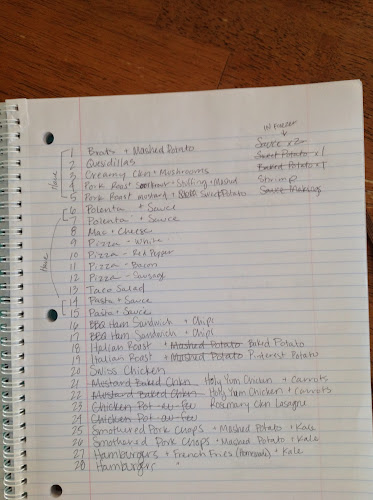 in freezer
Sauce x2
Sweet Potato x 1
Baked Potato x 1
Shrimp
Have
1 Brats + Mashed Potato
2 Quesidillas
3 Creamy Chkn + Mushrooms
4 Pork Roast + Stuffing + Mashed
5 Pork Roast mustard + Sweet Potato
Have
6 Polenta + Sauce
7 Polenta + Sauce
8 Mac + Cheese
9 Pizza - White
10 Pizza - Red Pepper
11 Pizza - Bacon
12 Pizza - Sausage
13 Taco Salad
14 Pasta + Sauce
15 Pasta + Sauce
16 BBQ Ham Sandwich + Chips
17 BBQ Ham Sandwich + Chips
18 Italian Roast + Mashed Potato Baked Potato
19 Italian Roast + Mashed Potato Pinterest Potato
20 Swiss Chicken
21 Mustard Baked Chkn Holy Yum Chicken + Carrots
22 Mustard Baked Chkn Holy Yum Chicken + Carrots
23 Chicken Pot-au-feu Rosemary Ckn Lasagna
24 Chicken Pot-au-feu
25 Smothered Pork Chops + Mashed Potato + Kale
26 Smothered Pork Chops + Mashed Potato + Kale
27 Hamburgers + French Fries (Homemade) + Kale
28 Hamburger "